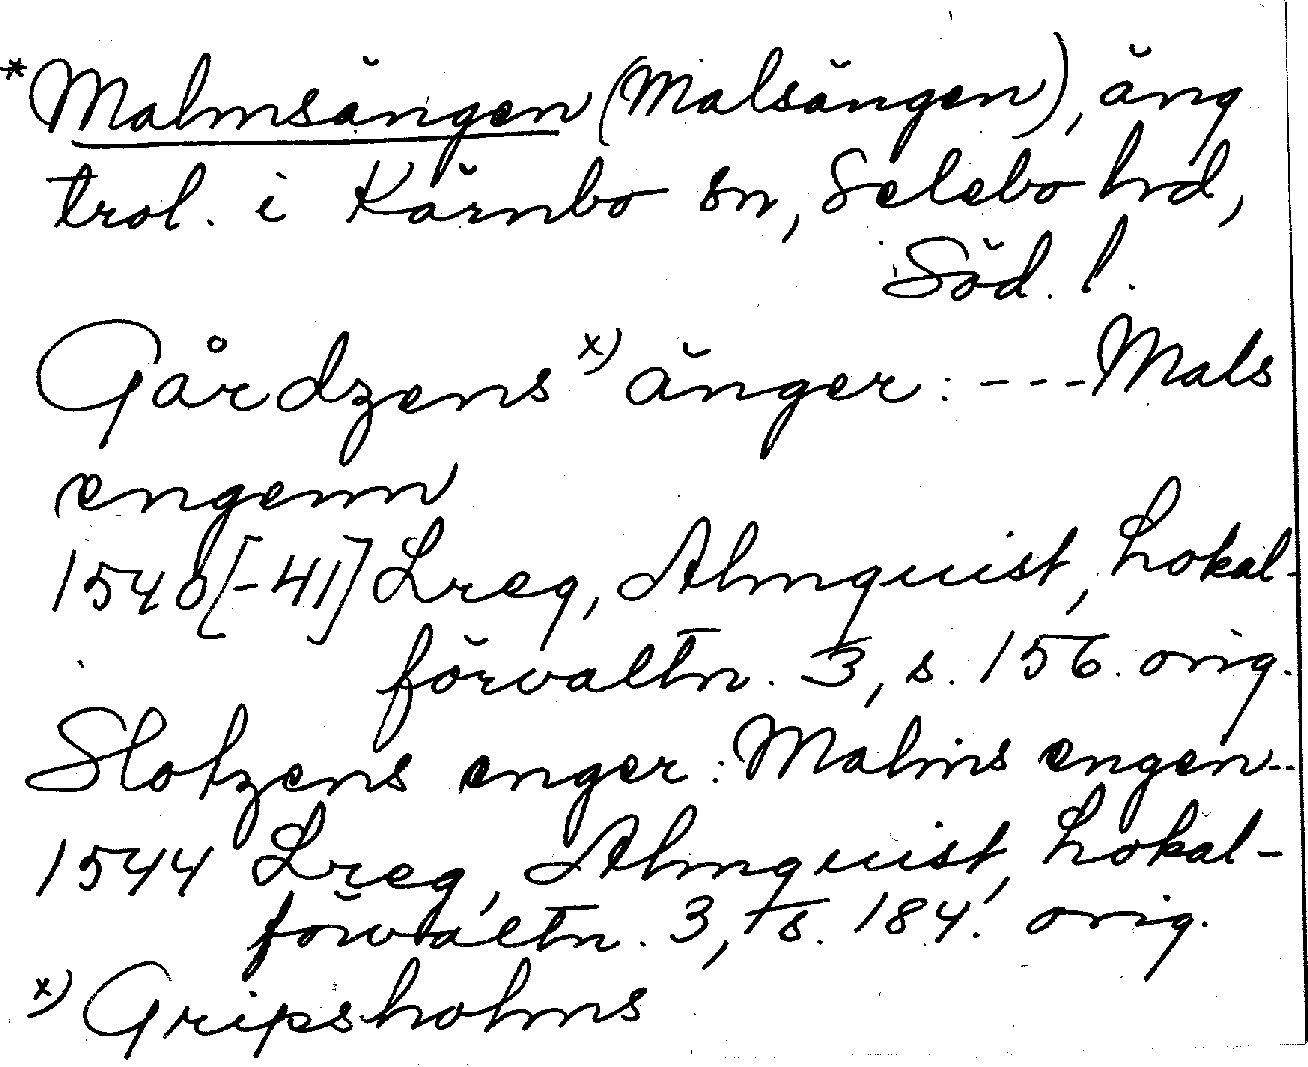 *Malmsängen (Malsängen), äng
trol. i Kärnbo sn, Selebo hd,
Söd. l.
Gårdzens x) änger: --- Mals
engenn
1540[-41] Lreg, Almquist, Lokal-
förvaltn. 3, s. 156. orig.
Slotzens enger: Malms engen--
1544 Lreg, Almquist, Lokal-
förvaltn. 3, s. 184. orig.
x) Gripsholms